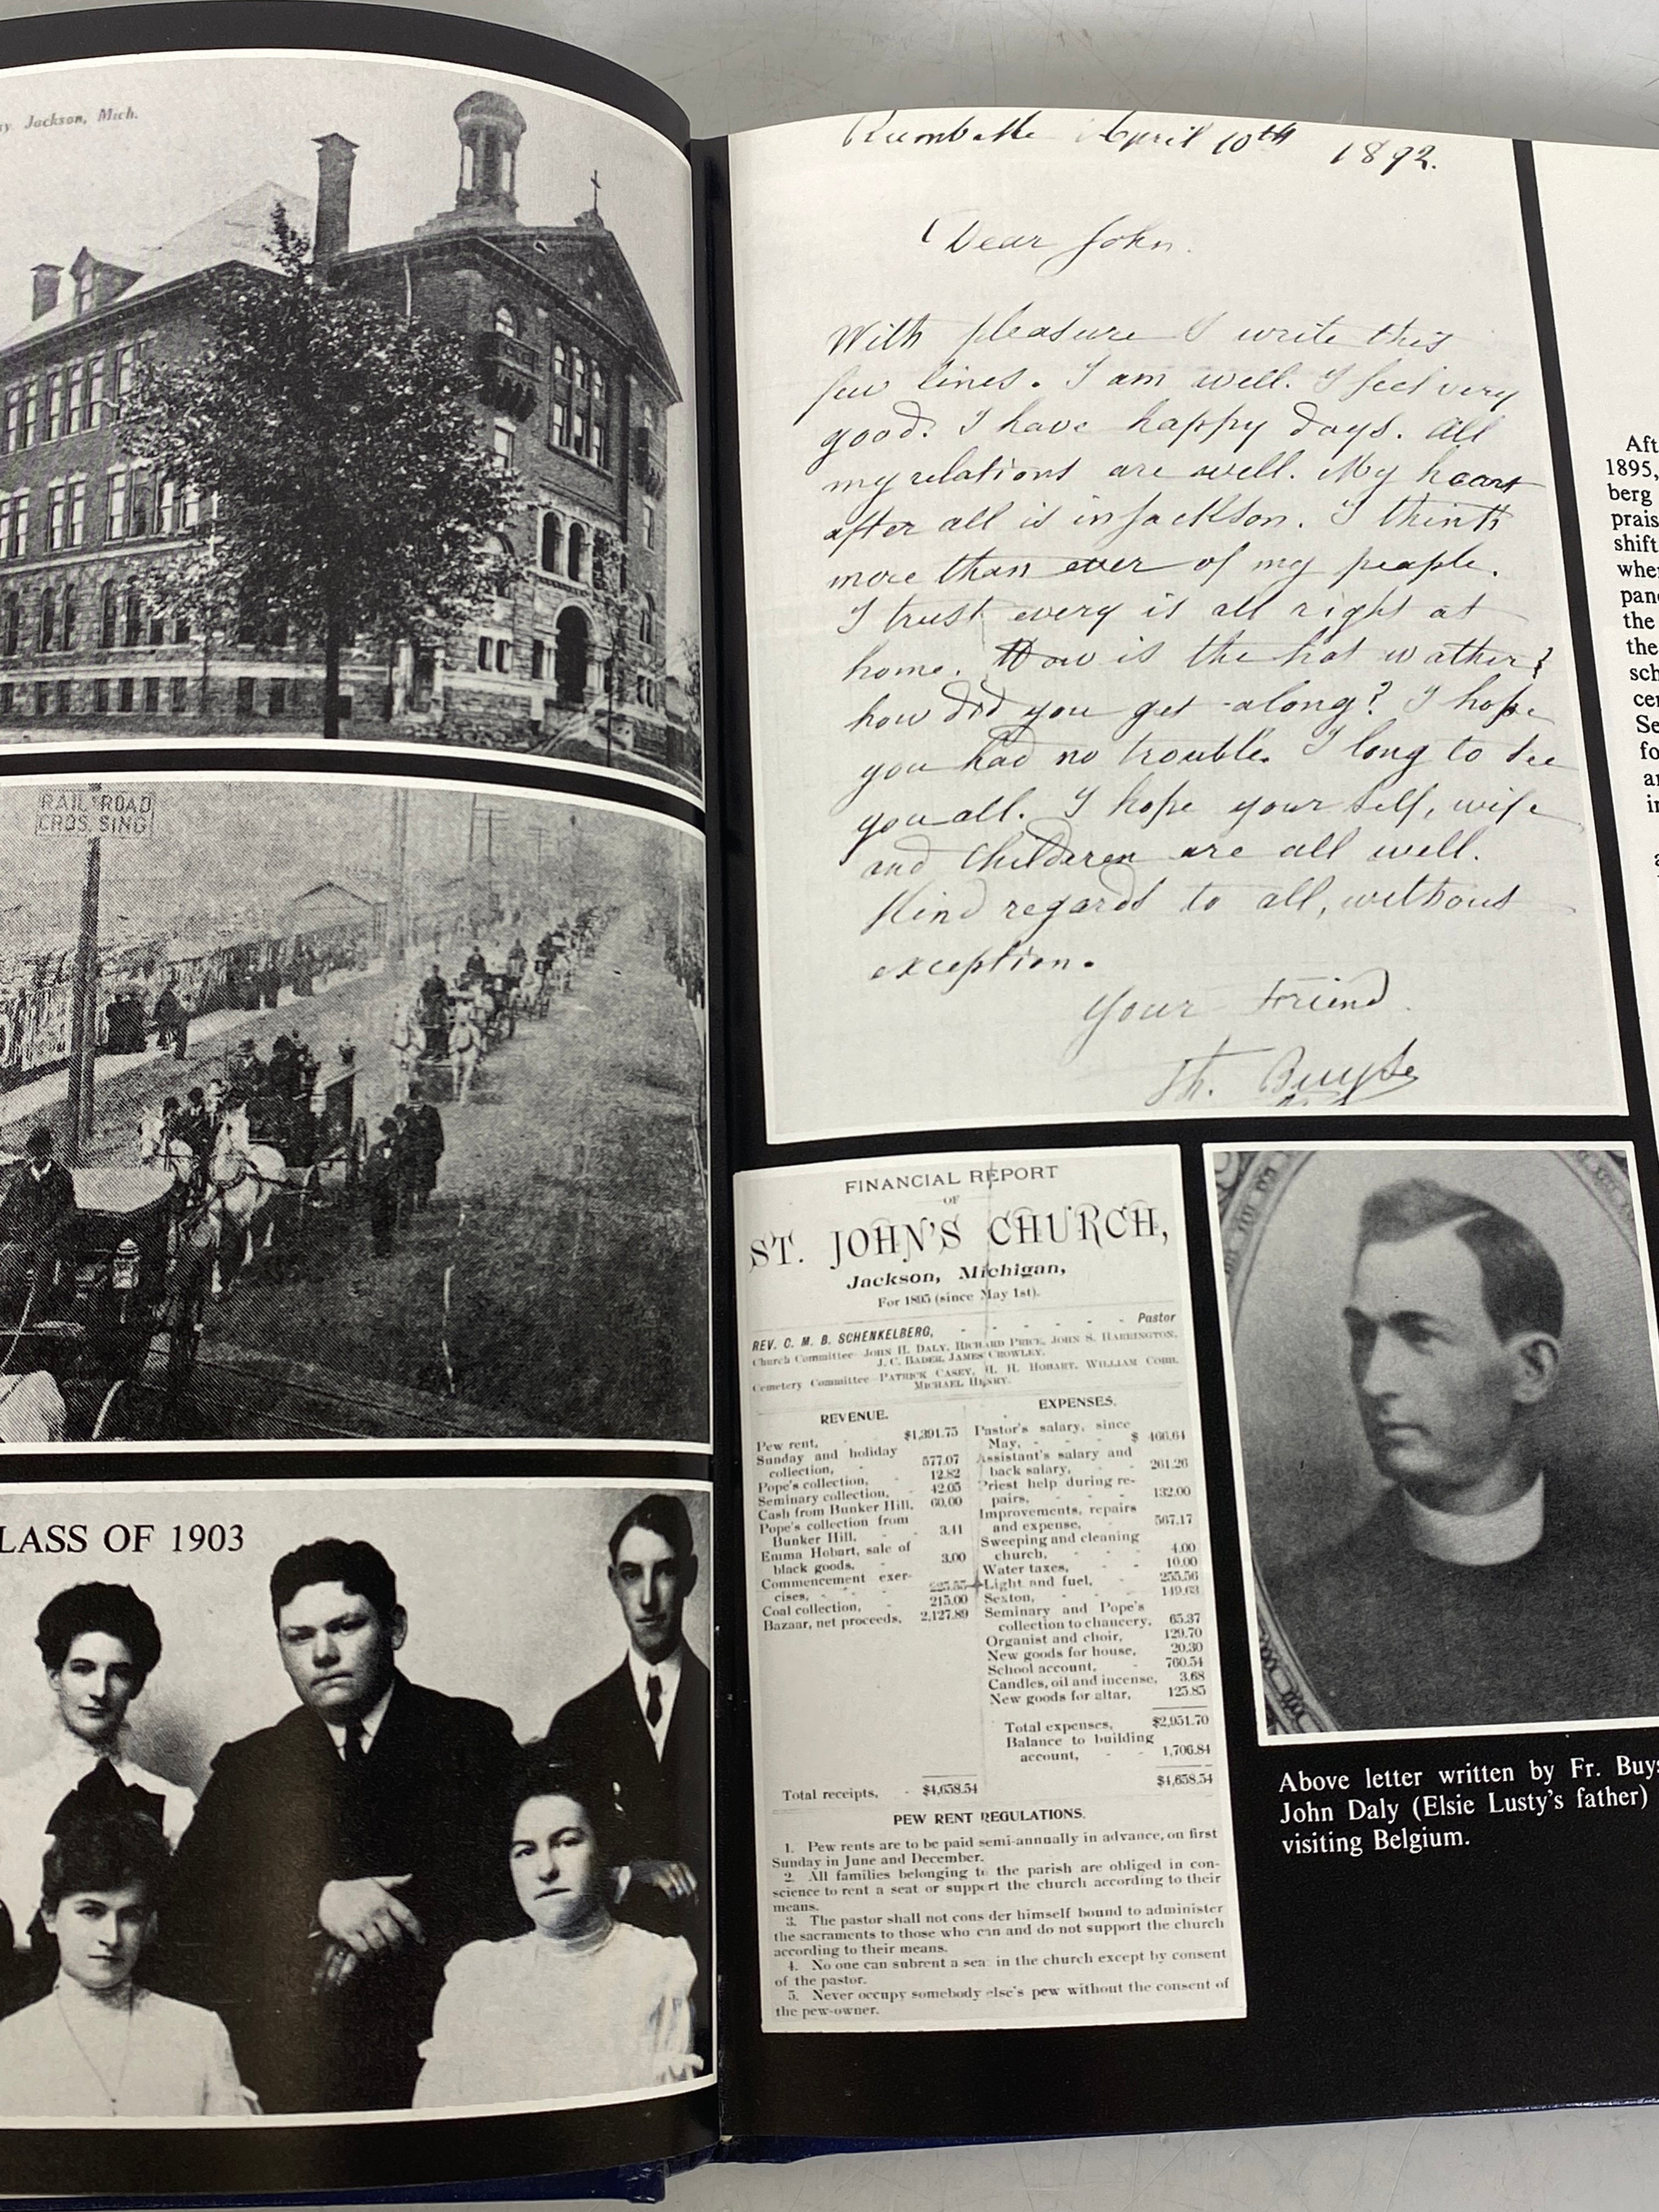 Jackson, Mich.
RAIL ROAD
CROSSING
LASS OF 1903
April 10th 1892.
Dear John.
With pleasure I write this
few lines. I am well. I feel very
good. I have happy days. All
my relations are well. My heart
after all is in Jackson. I think
more than ever of my people.
I trust every is all right at
home. How is the hot wather?
how did you get along? I hope
you had no trouble. I long to see
you all. I hope your self, wife
and Childeren are all well.
Kind regards to all, without
exception.
Your Friend
Th. Buyse
FINANCIAL REPORT
OF
ST. JOHN'S CHURCH,
Jackson, Michigan,
For 1895 (since May 1st).
REV. C. M. B. SCHENKELBERG, - - - - - - Pastor
Church Committee—JOHN H. DALY, RICHARD PRICE, JOHN S. HARRINGTON,
J. C. BADER, JAMES CROWLEY.
Cemetery Committee—PATRICK CASEY, H. H. HOBART, WILLIAM COBB,
MICHAEL HENRY.
REVENUE.
Pew rent, - - $1,391.75
Sunday and holiday
collection, - 577.07
Pope's collection, 12.82
Seminary collection, - 42.05
Cash from Bunker Hill, 60.00
Pope's collection from
Bunker Hill, - - 3.41
Emma Hobart, sale of
black goods, - - 3.00
Commencement exer-
cises, - - -
Coal collection, - 215.00
Bazaar, net proceeds, 2,127.89
Total receipts, - $4,658.54
EXPENSES.
Pastor's salary, since
May, - - - $ 466.64
Assistant's salary and
back salary, - - 261.26
Priest help during re-
pairs, - - - 132.00
Improvements, repairs
and expense, - - 567.17
Sweeping and cleaning
church, - - 4.00
Water taxes, - - 10.00
Light and fuel, - - 255.56
Sexton, - - - 149.63
Seminary and Pope's
collection to chancery, 65.37
Organist and choir, - 129.70
New goods for house, - 20.30
School account, - - 760.54
Candles, oil and incense, 3.68
New goods for altar, - 125.85
Total expenses, - $2,951.70
Balance to building
account, - - 1,706.84
$4,658.54
PEW RENT REGULATIONS.
1. Pew rents are to be paid semi-annually in advance, on first
Sunday in June and December.
2. All families belonging to the parish are obliged in con-
science to rent a seat or support the church according to their
means.
3. The pastor shall not consider himself bound to administer
the sacraments to those who can and do not support the church
according to their means.
4. No one can subrent a seat in the church except by consent
of the pastor.
5. Never occupy somebody else's pew without the consent of
the pew-owner.
Above letter written by Fr. Buys
John Daly (Elsie Lusty's father)
visiting Belgium.
Aft
1895,
berg
prais
shift
whe
pan
the
the
sch
cen
Se
fo
a
i